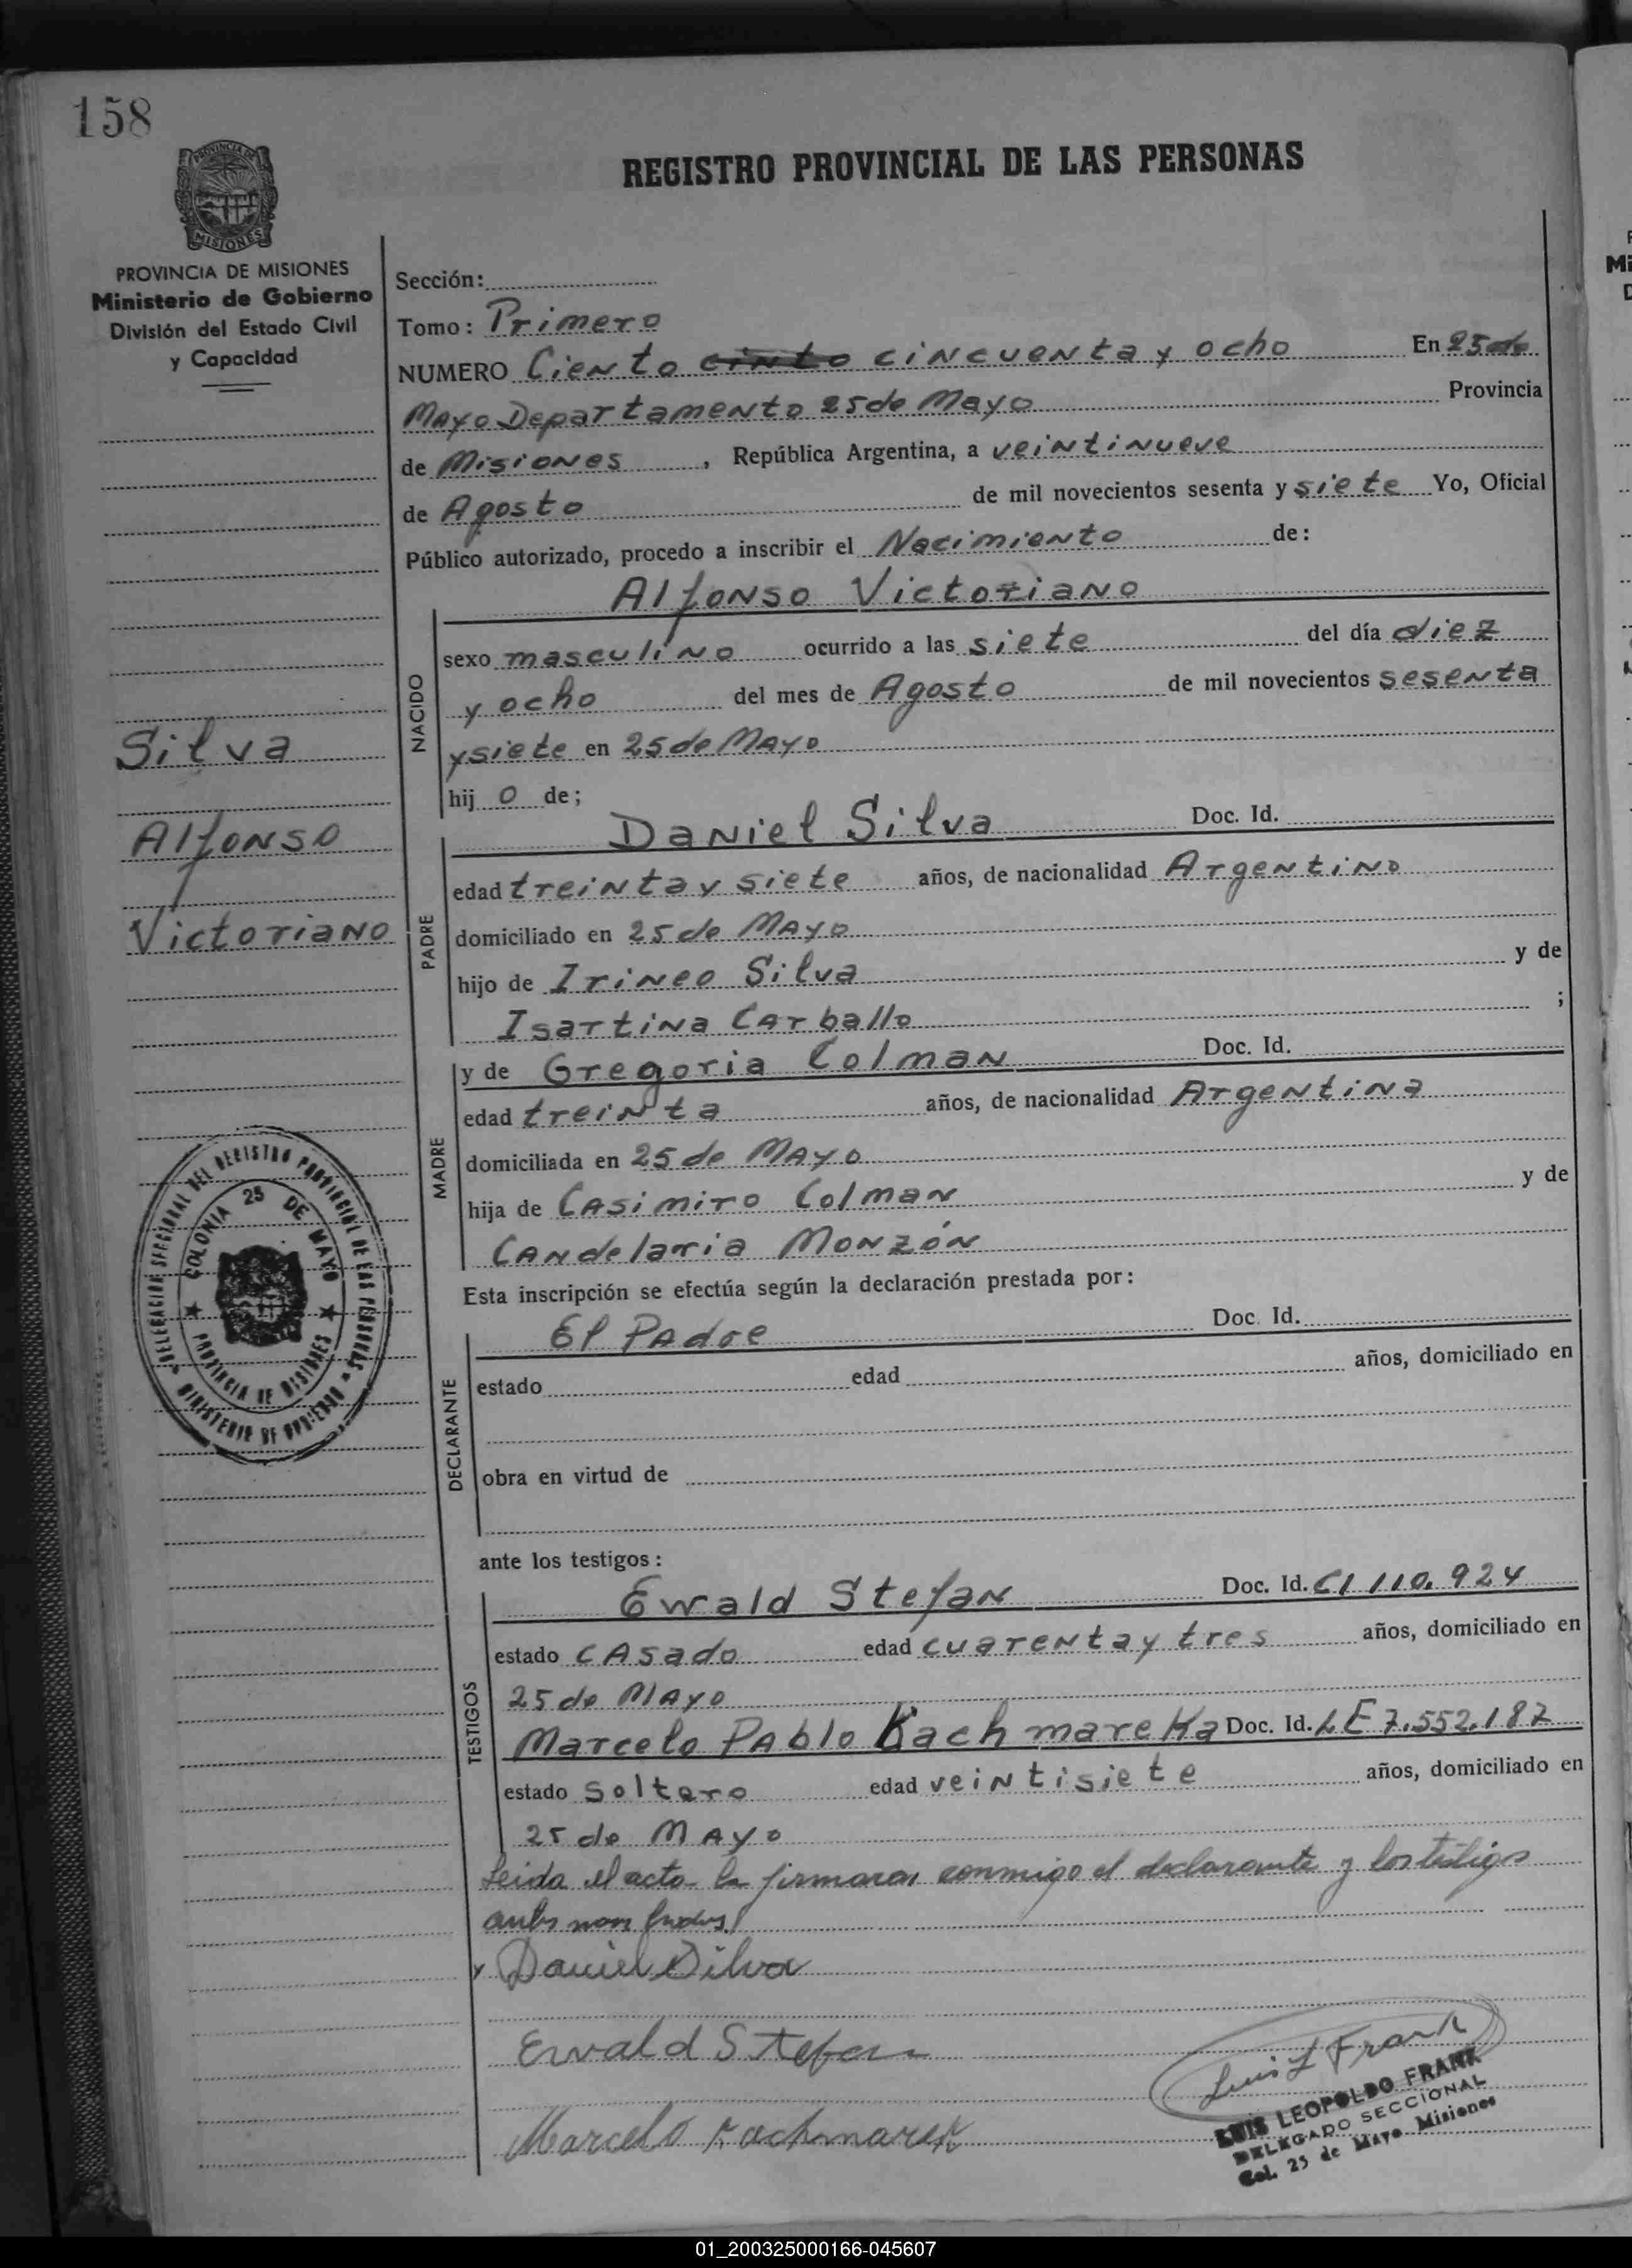 158
PROVINCIA DE MISIONES
REGISTRO PROVINCIAL DE LAS PERSONAS
PROVINCIA DE MISIONES
Ministerio de Gobierno
División del Estado Civil
y Capacidad
Sección:
Tomo: Primero
NUMERO Ciento cinto cincuenta y ocho En 25 de
Mayo Departamento 25 de Mayo Provincia
de Misiones, República Argentina, a veintinueve
de Agosto de mil novecientos sesenta y siete Yo, Oficial
Público autorizado, procedo a inscribir el Nacimiento de:
Alfonso Victoriano
NACIDO
sexo masculino ocurrido a las siete del día diez
y ocho del mes de Agosto de mil novecientos sesenta
y siete en 25 de Mayo
hij o de;
Silva
Alfonso
Victoriano
PADRE
Daniel Silva Doc. Id.
edad treinta y siete años, de nacionalidad Argentino
domiciliado en 25 de Mayo
hijo de Irineo Silva y de
Isartina Carballo ;
MADRE
y de Gregoria Colman Doc. Id.
edad treinta años, de nacionalidad Argentina
domiciliada en 25 de Mayo
hija de Casimiro Colman y de
Candelaria Monzón
DELEGACION SECCIONAL DEL REGISTRO PROVINCIAL DE LAS PERSONAS
MINISTERIO DE GOBIERNO
COLONIA 25 DE MAYO
PROVINCIA DE MISIONES
Esta inscripción se efectúa según la declaración prestada por:
DECLARANTE
El Padre Doc. Id.
estado edad años, domiciliado en
obra en virtud de
ante los testigos:
TESTIGOS
Ewald Stefan Doc. Id. CI 110.924
estado casado edad cuarenta y tres años, domiciliado en
25 de Mayo
Marcelo Pablo Kachmareka Doc. Id. LE 7.552.187
estado soltero edad veintisiete años, domiciliado en
25 de Mayo
Leida el acta la firmaran conmigo el declarante y los testigos
Daniel Silva
Ewald Stefan
Marcelo Kachmarek
Luis L Frank
LUIS LEOPOLDO FRANK
DELEGADO SECCIONAL
Col. 25 de Mayo Misiones
01_200325000166-045607